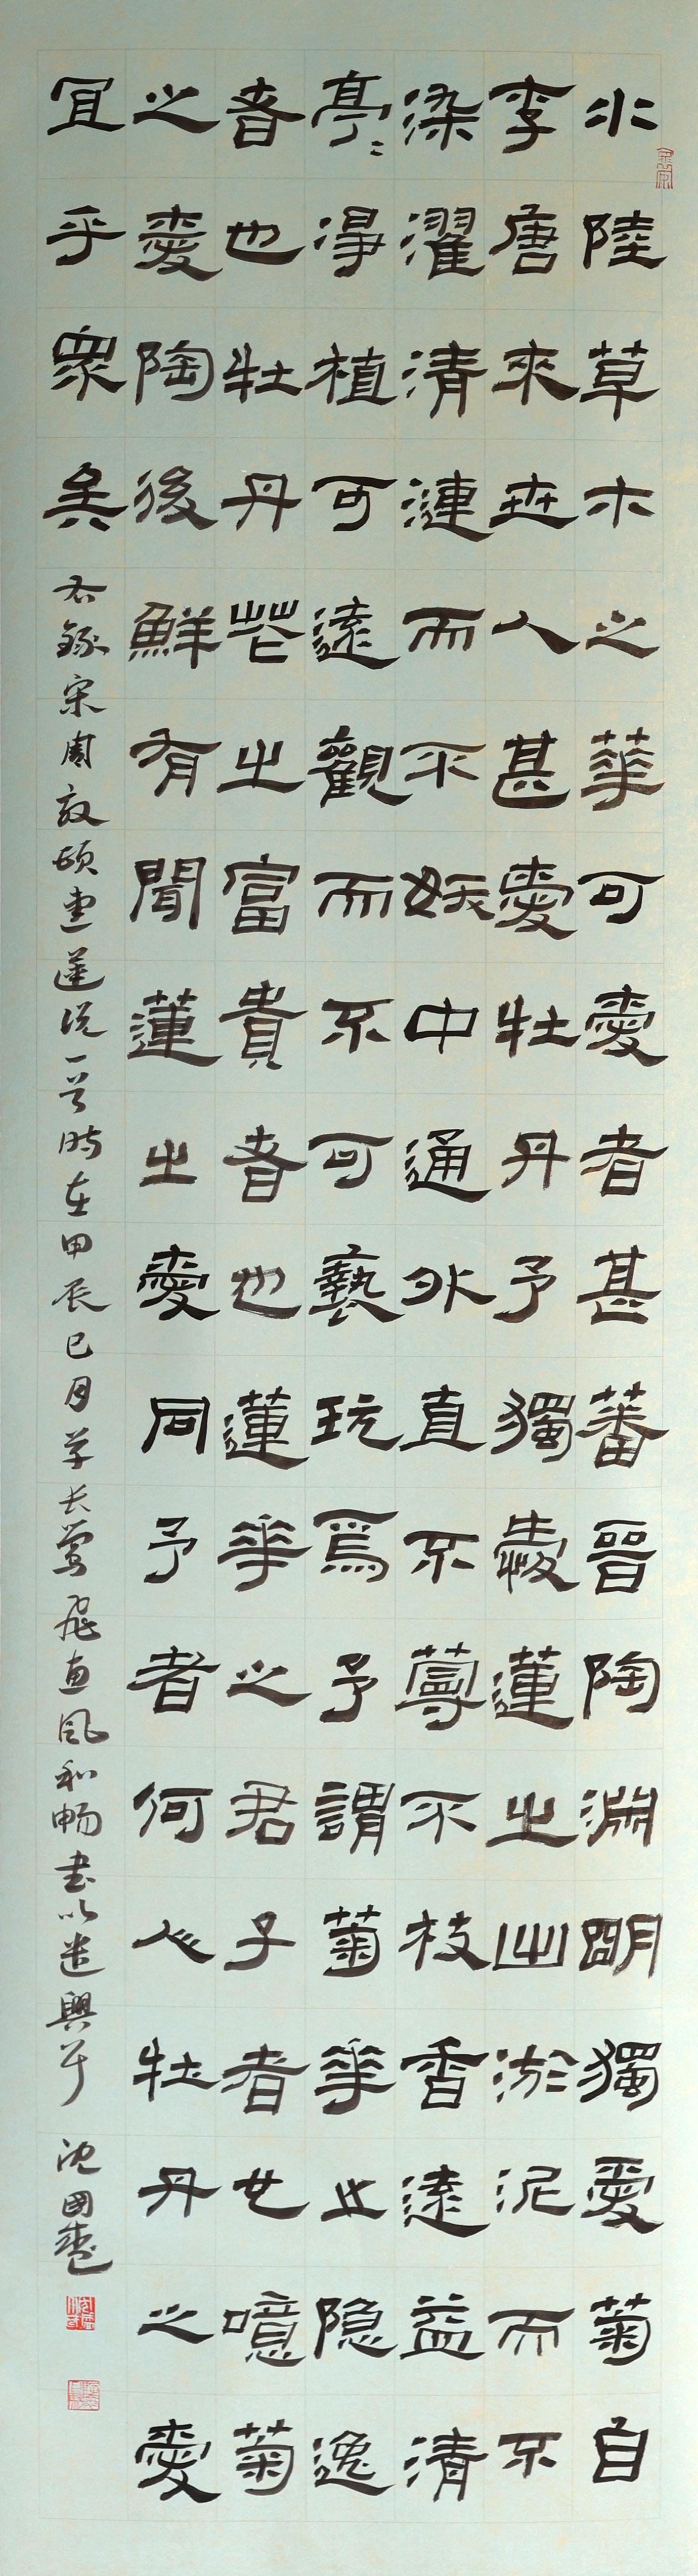 水陸草木之華可愛者甚蕃晉陶淵明獨愛菊自
李唐來世人甚愛牡丹予獨愛蓮之出淤泥而不
染濯清漣而不妖中通外直不蔓不枝香遠益清
亭亭淨植可遠觀而不可褻玩焉予謂菊華之隐逸
者也牡丹花之富貴者也蓮華之君子者也噫菊
之愛陶後鮮有聞蓮之愛同予者何人牡丹之愛
宜乎眾矣
右錄宋周敦頤愛蓮說一首時在甲辰巳月草长莺飛惠風和畅書以遣興耳
沈國